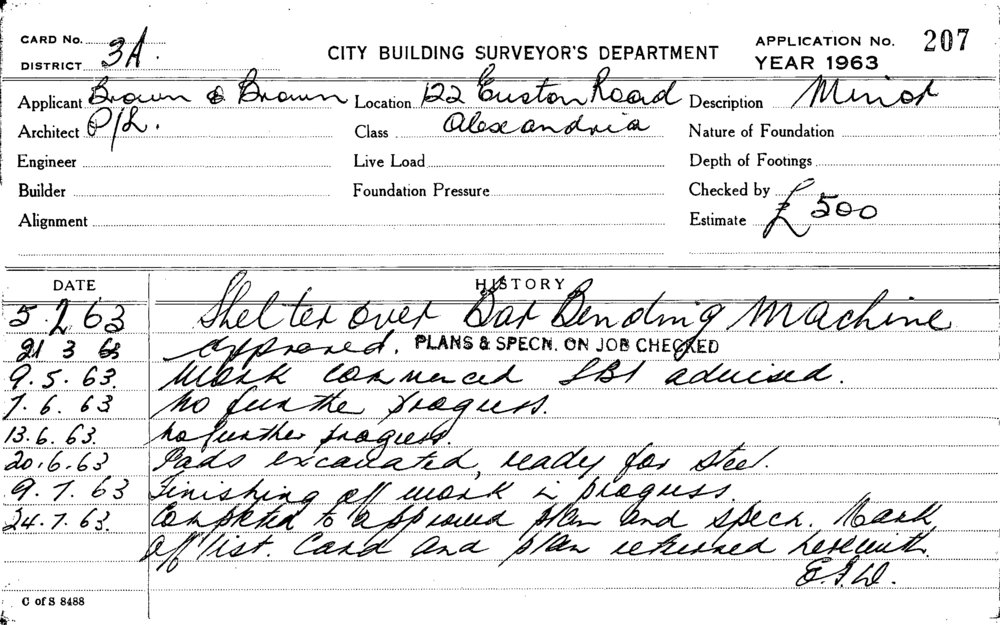 CARD No.
DISTRICT 3A.
CITY BUILDING SURVEYOR'S DEPARTMENT
APPLICATION No. 207
YEAR 1963
Applicant Brown & Brown Location 122 Euston Road Description Minor
Architect P/L. Class Alexandria Nature of Foundation
Engineer Live Load Depth of Footings
Builder Foundation Pressure Checked by
Alignment Estimate £500
DATE HISTORY
5.2.63 Shelter over Bar Bending Machine
21 3 63 approved. PLANS & SPECN. ON JOB CHECKED
9.5.63. Work commenced SBI advised.
7.6.63 No further progress.
13.6.63. No further progress.
20.6.63 Pads excavated, ready for steel.
9.7.63 Finishing off work in progress.
24.7.63. Completed to approved plan and specn. Mark
off list. Card and plan returned herewith.
C of S 8488